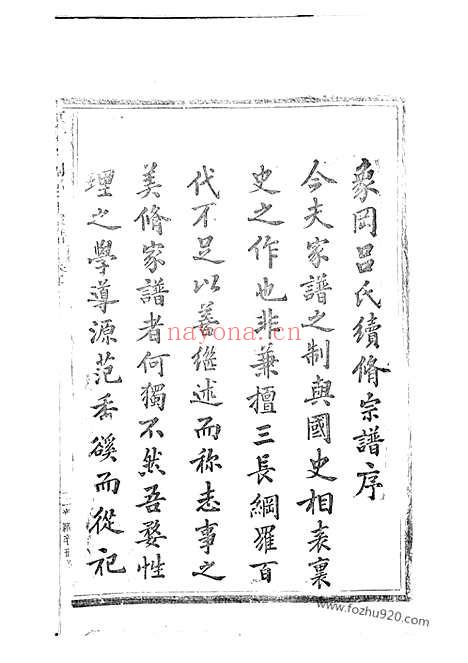 象岡呂氏續脩宗譜序
今夫家譜之制與國史相表裏
史之作也非兼擅三長綱羅百
代不足以善繼述而稱志事之
美脩家譜者何獨不然吾婺性
理之學導源范香溪而從祀
nayona.cn
www.fozhu920.com